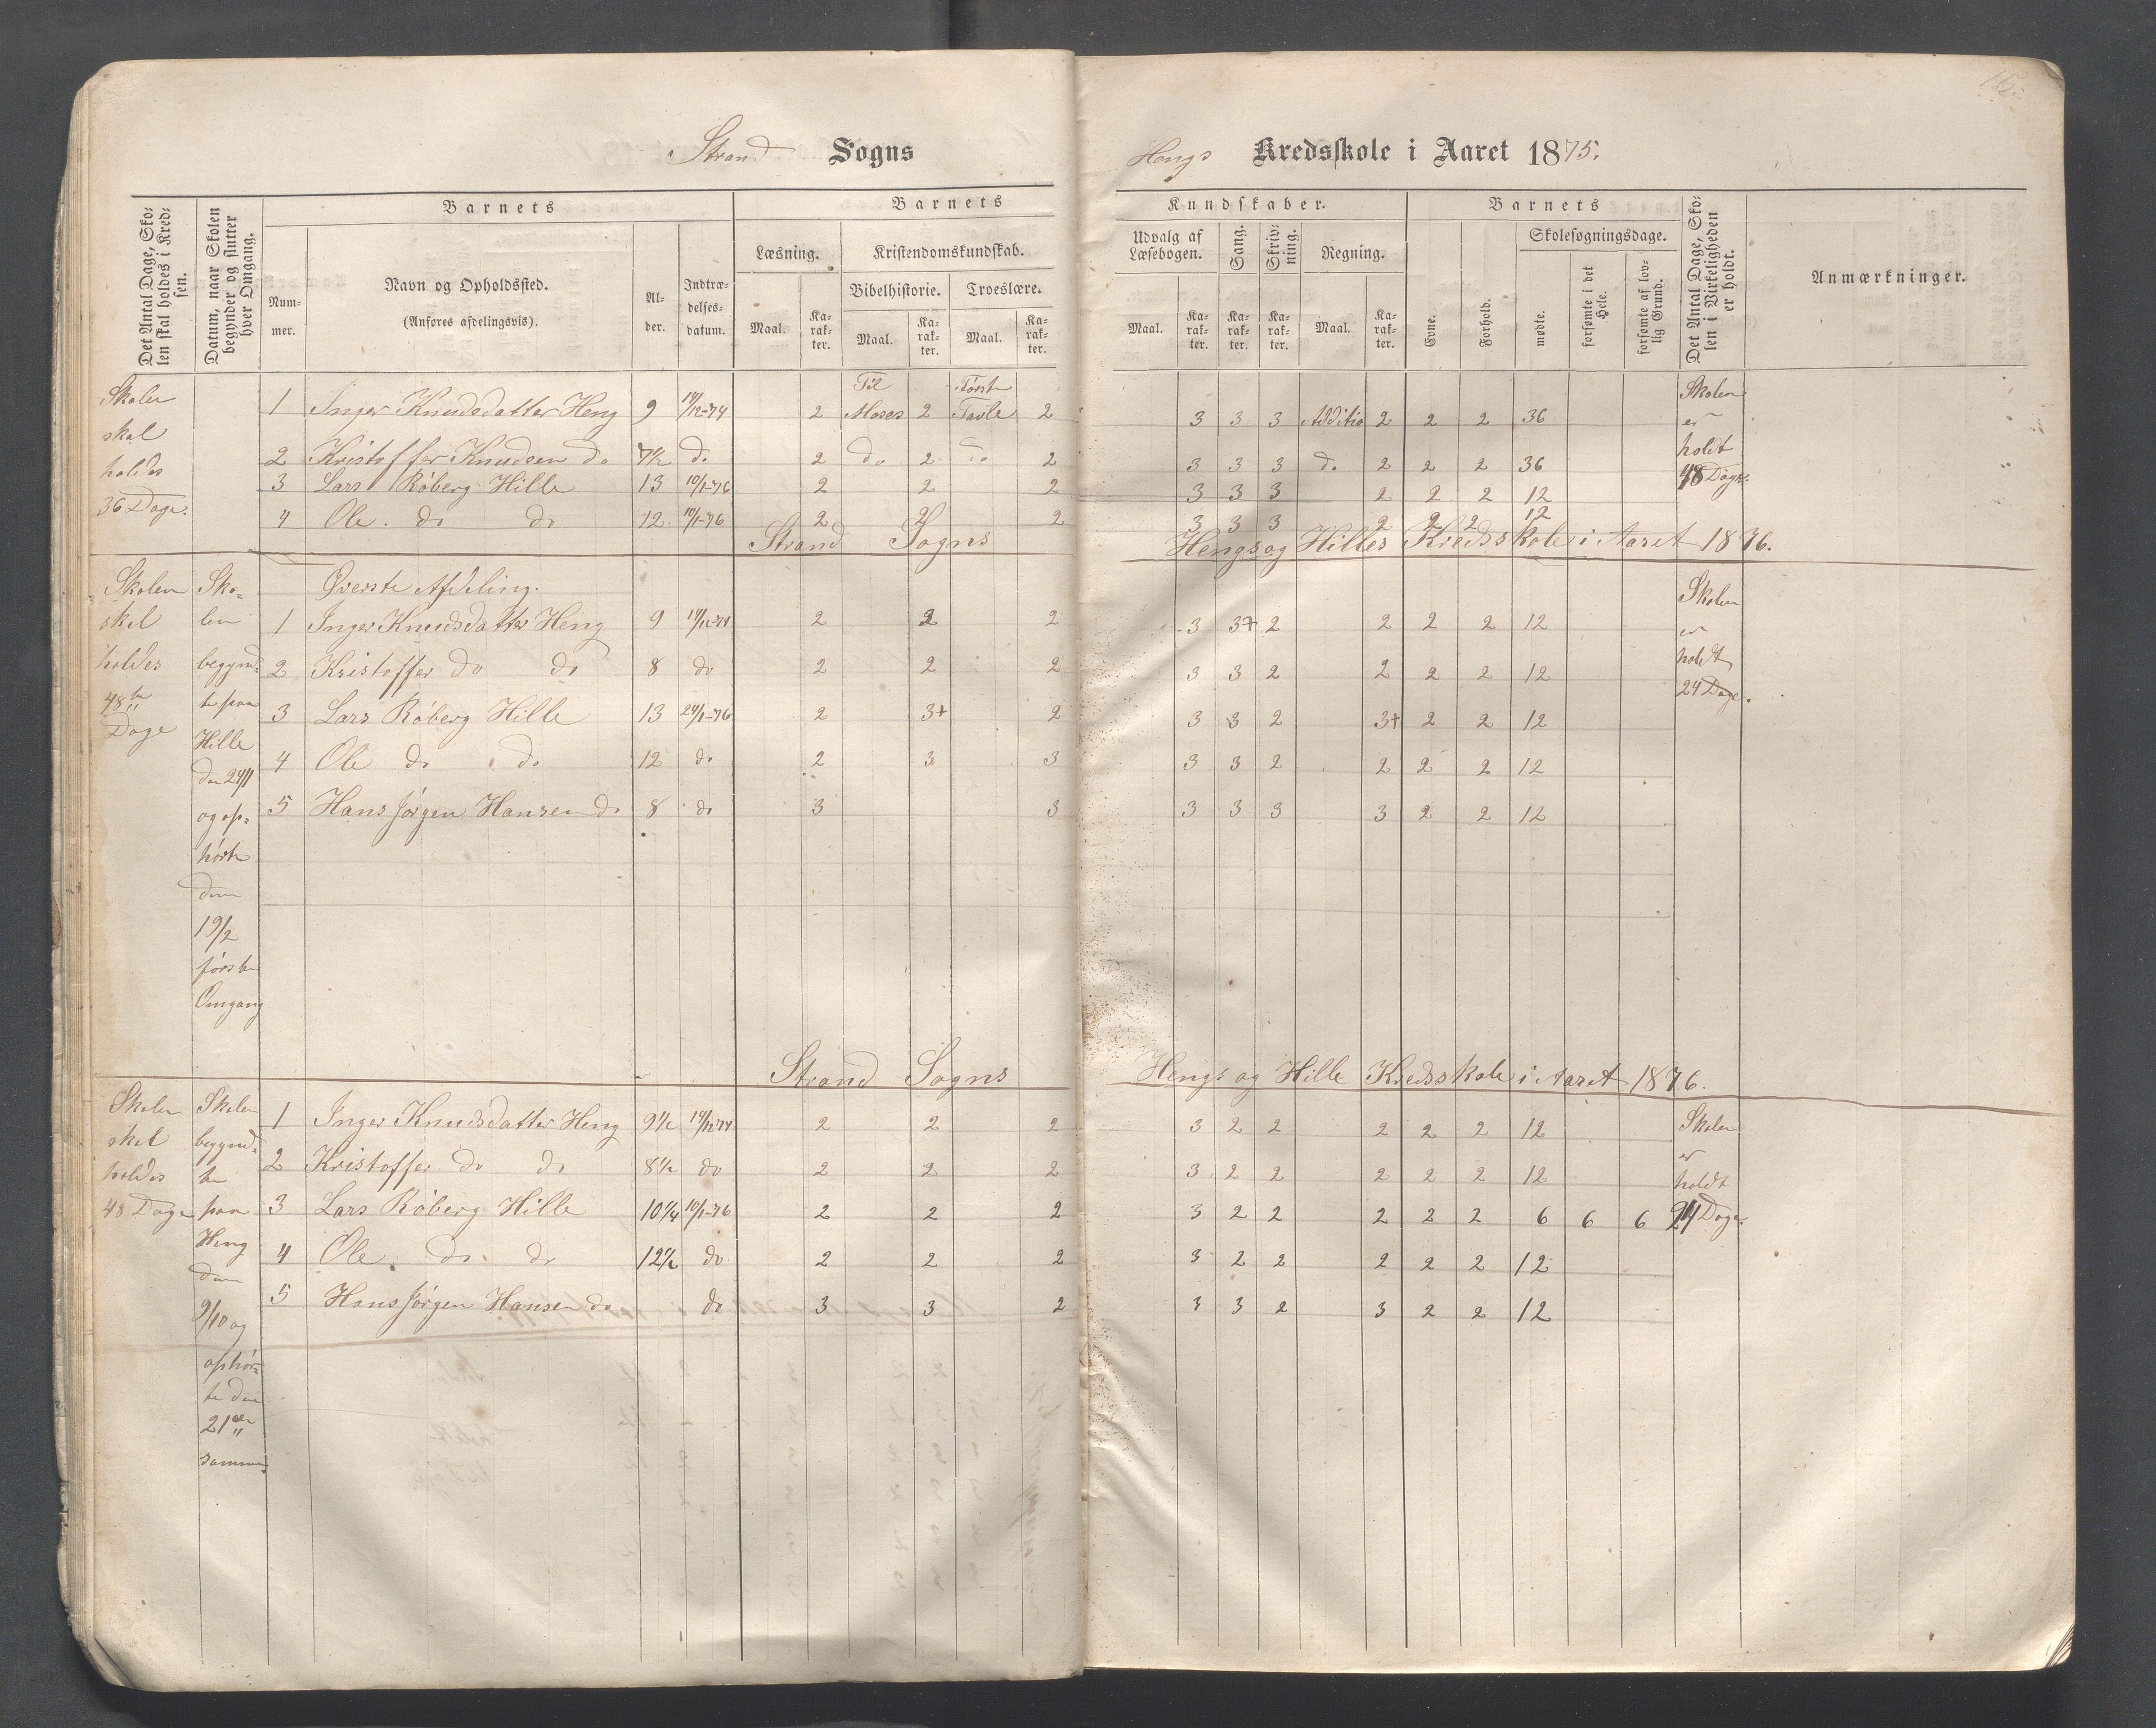 Strand Sogns Hengs Kredsskole i Aaret 1875.
Det Antal Dage, Skolen skal holdes i Kredsen.
Datum, naar Skolen begynder og slutter hver Omgang.
Barnets
Nummer.
Navn og Opholdssted.
(Anføres afdelingsvis).
Alder.
Indtrædelsesdatum.
Barnets Kundskaber.
Læsning.
Maal. Karakter.
Kristendomskundskab.
Bibelhistorie. Troeslære.
Maal. Karakter. Maal. Karakter.
Udvalg af Læsebogen.
Maal. Karakter.
Sang. Karakter.
Skrivning. Karakter.
Regning.
Maal. Karakter.
Barnets
Evne. Forhold.
Skolesøgningsdage.
mødte. forsømte i det Hele. forsømte af lovlig Grund.
Det Antal Dage, Skolen i Virkeligheden er holdt.
Anmærkninger.
Skolen skal holdes 36 Dage.
1 Inger Knudsdatter Heng 9 14/12-74 2 Til Moses 2 Første Tavle 2 3 3 3 Additio 2 2 2 36
2 Kristoffer Knudsen do 7½ do 2 do 2 do 2 3 3 3 do 2 2 2 36
3 Lars Røberg Hille 13 10/1-76 2 2 2 3 3 3 2 2 2 12
4 Ole do do 12 10/1-76 2 2 2 3 3 3 2 2 2 12
Skolen er holdt 48 Dage.
Strand Sogns Hengs og Hilles Kredsskole i Aaret 1876.
Skolen skal holdes 48 Dage
Skolen begyndte paa Hille den 24/1 og ophørte den 19/2 første Omgang
Øverste Afdeling.
1 Inger Knudsdatter Heng 9 14/12-74 2 2 2 3 3+ 2 2 2 2 12
2 Kristoffer do do 8 do 2 2 2 3 3 2 2 2 2 12
3 Lars Røberg Hille 13 24/1-76 2 3+ 2 3 3 2 3+ 2 2 12
4 Ole do do 12 do 2 3 3 3 3 2 2 2 2 12
5 Hans Jørgen Hansen do 8 do 3 3 3 3 3 3 2 2 12
Skolen er holdt 24 Dage.
Strand Sogns Hengs og Hille Kredsskole i Aaret 1876.
Skolen skal holdes 48 Dage
Skolen begyndte paa Heng den 9/10 og ophørte den 21de samme
1 Inger Knudsdatter Heng 9½ 14/12-74 2 2 2 3 2 2 2 2 2 12
2 Kristoffer do do 8½ do 2 2 2 3 2 2 2 2 2 12
3 Lars Røberg Hille 10¼ 10/1-76 2 2 2 3 2 2 2 2 2 6 6 6
4 Ole do do 12½ do 2 2 2 3 2 2 2 2 2 12
5 Hans Jørgen Hansen do do 3 3 2 3 3 2 3 2 2 12
Skolen er holdt 24 Dage.